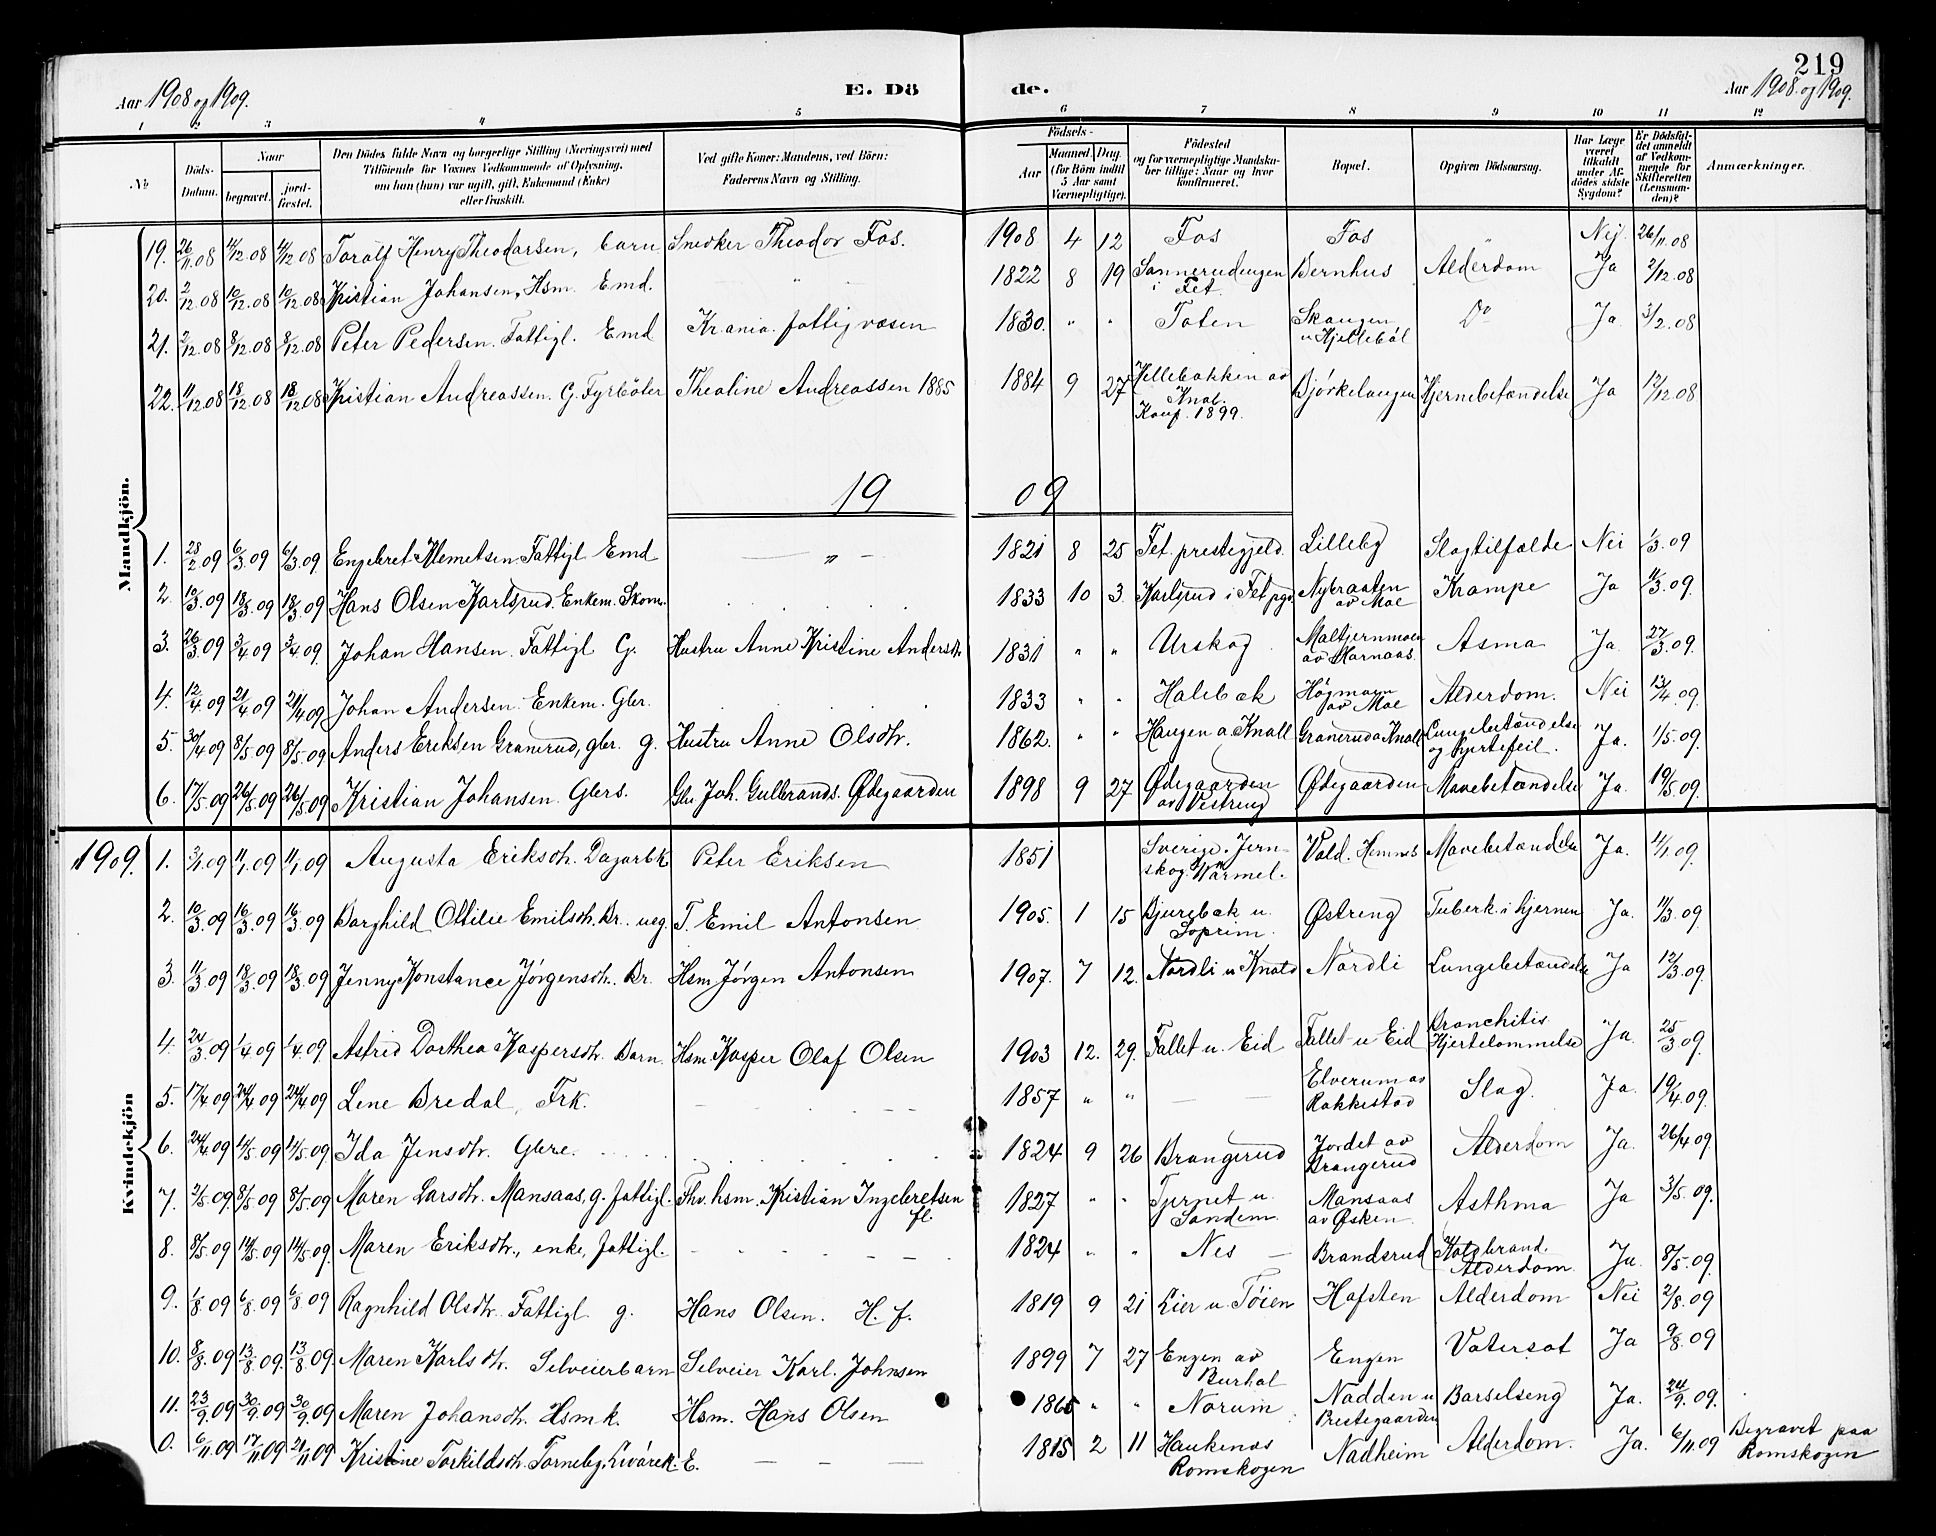 219
Aar 1908 og 1909.
E. Dö de.
Aar 1908 og 1909.
1 2 3 4 5 6 7 8 9 10 11 12
No
Döds-Datum.
Naar
begravet.
jord-fæstet.
Den Dödes fulde Navn og borgerlige Stilling (Næringsvei) med
Tilföiende for Voxnes Vedkommende af Oplysning,
om han (hun) var ugift, gift, Enkemand (Enke)
eller fraskilt.
Ved gifte Koner: Mandens, ved Börn:
Faderens Navn og Stilling.
Födsels-
Aar
Maaned. Dag.
(for Börn indtil
5 Aar samt
Værnepligtige).
Födested
og for værnepligtige Mandska-
ber tillige: Naar og hvor
konfirmeret.
Bopæl.
Opgiven Dödsaarsag.
Har Læge
været
tilkaldt
under Af-
dödes sidste
Sygdom?
Er Dödsfal-
det anmeldt
af Vedkom-
mende for
Skifteretten
(Lensman-
den)?
Anmærkninger.
Mandkjön.
19. 26/11 08 4/12 08 4/12 08 Toralf Henry Theodorsen, barn Snedker Theodor Fos. 1908 4 12 Fos Fos " Nej. 26/11 08
20. 2/12 08 10/12 08 10/12 08 Kristian Johansen, Hsm. Emd. " 1822 8 19 Sannerudengen i Fet. Bernhus Alderdom Ja 2/12 08
21. 2/12 08 8/12 08 8/12 08 Peter Pedersen. Fattigl. Emd Kr.ania. fattigvæsen 1830. " " Toten Skaugen u Hjellebøl Do Ja. 3/12 08
22. 11/12 08 18/12 08 18/12 08 Kristian Andreassen. G. Fyrbøter Thealine Andreassen 1885 1884 9 27 Hellebakken av Knal. Konf. 1899. Bjørkelangen Hjernebetændelse Ja 12/12 08
1909
1. 28/2 09 6/3 09 6/3 09 Engebret Klemetsen Fattigl Emd " 1821 8 25 Fet prestegjeld. Lilleby Slagtilfælde Nei 1/3 09
2. 10/3 09 18/3 09 18/3 09 Hans Olsen Karlsrud. Enkem. Skom. 1833 10 3. Karlsrud i Fet pgd. Nybraaten av Moe Krampe Ja 11/3 09.
3. 26/3 09 3/4 09 3/4 09. Johan Hansen. Fattigl G. Hustru Anne Kristine Andersdtr. 1831 " " Urskog Maltjernmoen av Harnaas. Asma Ja. 27/3 09.
4. 12/4 09 21/4 09 21/4 09 Johan Andersen. Enkem. Gbr. 1833 " " Halebæk Høgmoen av Moe Alderdom. Nei 13/4. 09.
5. 30/4 09 8/5 09 8/5 09 Anders Eriksen Granerud, gbr. g. Hustru Anne Olsdtr. 1862. " " Haugen a. Knall Granerud a Knall Lungebetændelse og hjertefeil. Ja. 1/5. 09.
6. 17/5 09 26/5 09 26/5 09 Kristian Johansen. Gbrs. Gbr Joh. Gulbrands. Ødegaarden 1898 9 27 Ødegaarden av Vestreng Ødegaarden Mavebetændelse Ja. 19/5 09.
Kvindekjön
1909.
1. 3/1 09 11/1 09 11/1 09 Augusta Eriksdtr. Dagarbk Peter Eriksen 1851 Sverige. Jern-skog. Värmel. Vold. Hemnes Mavebetændelse Ja. 4/1 09.
2. 10/3. 09 16/3 09 16/3 09 Borghild Ottilie Emilsdtr. Br. ueg. F. Emil Antonsen 1905. 1 15 Bjurebæk u. Soprim. Østreng Tuberk. i hjernen Ja. 11/3 09.
3. 11/3 09 18/3 09 18/3 09 Jenny Konstance Jørgensdtr. Br. Hsm Jørgen Antonsen 1907. 7 12. Nordli u Knold Nordli Lungebetændelse Ja 12/3 09.
4. 24/3 09 1/4 09 1/4 09. Astrid Dorthea Kaspersdtr. Barn Hsm. Kasper Olaf Olsen 1903 12. 29. Fallet u. Eid Fallet u Eid Bronchitis Hjertelammelse Ja. 25/3 09.
5. 17/4 09 24/4 09 24/4 09 Lene Bredal, Frk. 1857 " " Elverum av Rakkestad Slag. Ja. 19/4 09.
6. 24/4 09 14/5 09 14/5 09 Ida Jensdtr. Gbre. 1824 9 26 Brangerud Jordet av Brangerud Alderdom Ja. 26/4 09
7. 2/5 09. 8/5 09 8/5 09 Maren Larsdtr. Mansaas, g. fattigl. Fhv. hsm. Kristian Ingebretsen fl. 1827 " " Tjernet u. Sandem. Mansaas av Øsken Asthma Ja 3/5 09.
8. 8/5. 09 14/5 09 14/5 09. Maren Eriksdtr., enke, fattigl. 1824 " " Nes Brandsrud Kolebrand. Alderdom. Ja. 8/5. 09.
9. 1/8 09 6/8 09 6/8 09 Ragnhild Olsdtr. Fattigl g. Hans Olsen. H. f. 1819 9 21 Lier u. Tøien Hafsten Alderdom Nei 2/8. 09
10. 8/8. 09 13/8 09. 13/8 09. Maren Karlsdtr. Selveierbarn Selveier Karl. Johnsen 1899 7 27 Engen av Burhol Engen Vatersot Ja 9/8. 09
11. 23/9 09 30/9 09 30/9 09 Maren Johansdtr. Hsmk. Hsm. Hans Olsen 1865 " " Norum Nadden u Prestegaarden Barselseng Ja. 24/9. 09.
0. 6/11 09 17/11 09 21/11 09 Kristine Torkildsdtr. Torneby, kvårek. E. 1815 2 11 Haukenæs Romskogen Nadheim Alderdom. Ja. 6/11 09 Begravet paa Romskogen